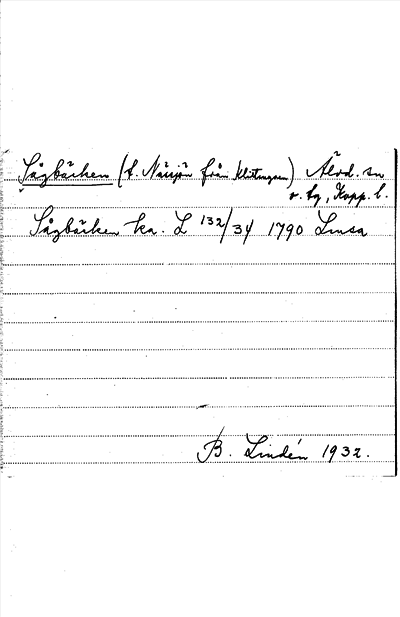 Sågbäcken (t. Närsjön från Klitungen) Älvd. sn
o. tg, Kopp. l.
Sågbäcken ka. L 132/34 1790 Lmsa
B. Lindén 1932.